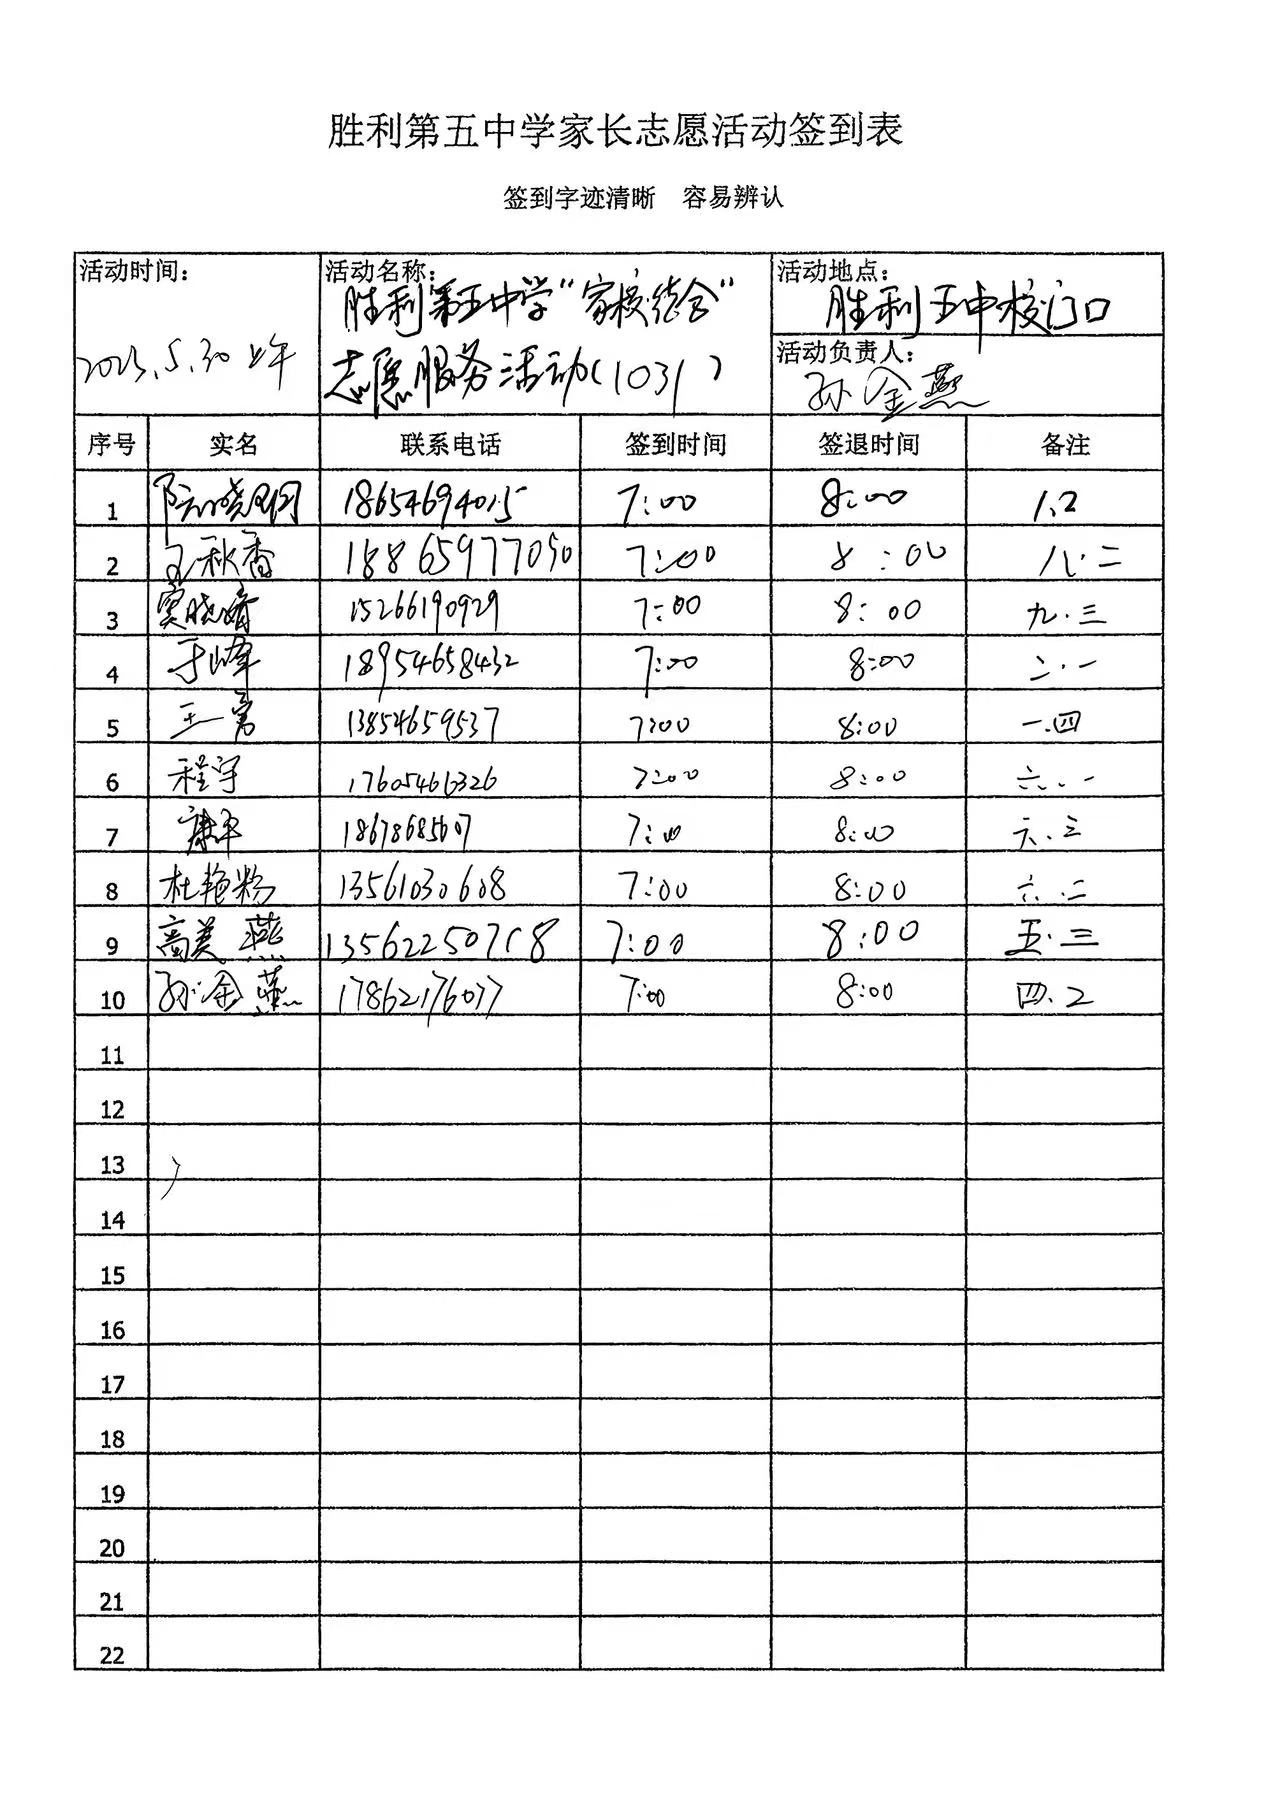 胜利第五中学家长志愿活动签到表
签到字迹清晰 容易辨认
活动时间: 2023.5.30上午
活动名称: 胜利第五中学"家校结合"
志愿服务活动(1031)
活动地点: 胜利五中校门口
活动负责人: 孙金燕
序号 实名 联系电话 签到时间 签退时间 备注
1 18654694015 7:00 8:00 1.2
2 王秋香 18865977050 7:00 8:00 八.二
3 窦晓婧 15266190929 7:00 8:00 九.三
4 于峰 18954658432 7:00 8:00 二.一
5 13854659537 7:00 8:00 一.四
6 程宇 17605466326 7:00 8:00 六.一
7 康平 18678685607 7:00 8:00 六.三
8 杜艳粉 13561030608 7:00 8:00 六.二
9 高美燕 13562250718 7:00 8:00 五.三
10 孙金燕 17862176077 7:00 8:00 四.2
11
12
13
14
15
16
17
18
19
20
21
22